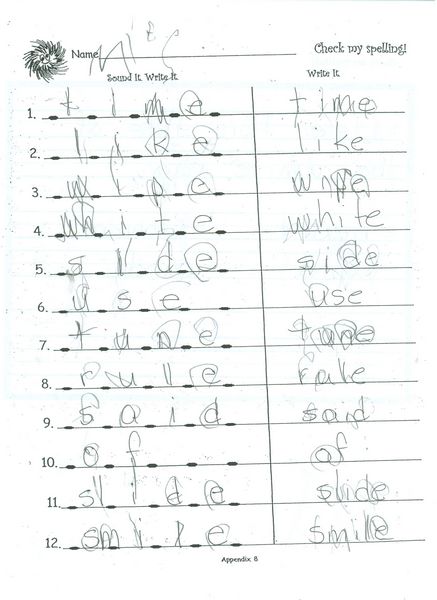 Name Check my spelling!
Sound it. Write it. Write it.
1. t i m e time
2. l i k e like
3. w i p e wipe
4. wh i t e white
5. s i d e side
6. u s e use
7. t u n e tune
8. r u l e rule
9. s a i d said
10. o f of
11. sl i d e slide
12. sm i l e smile
Appendix B